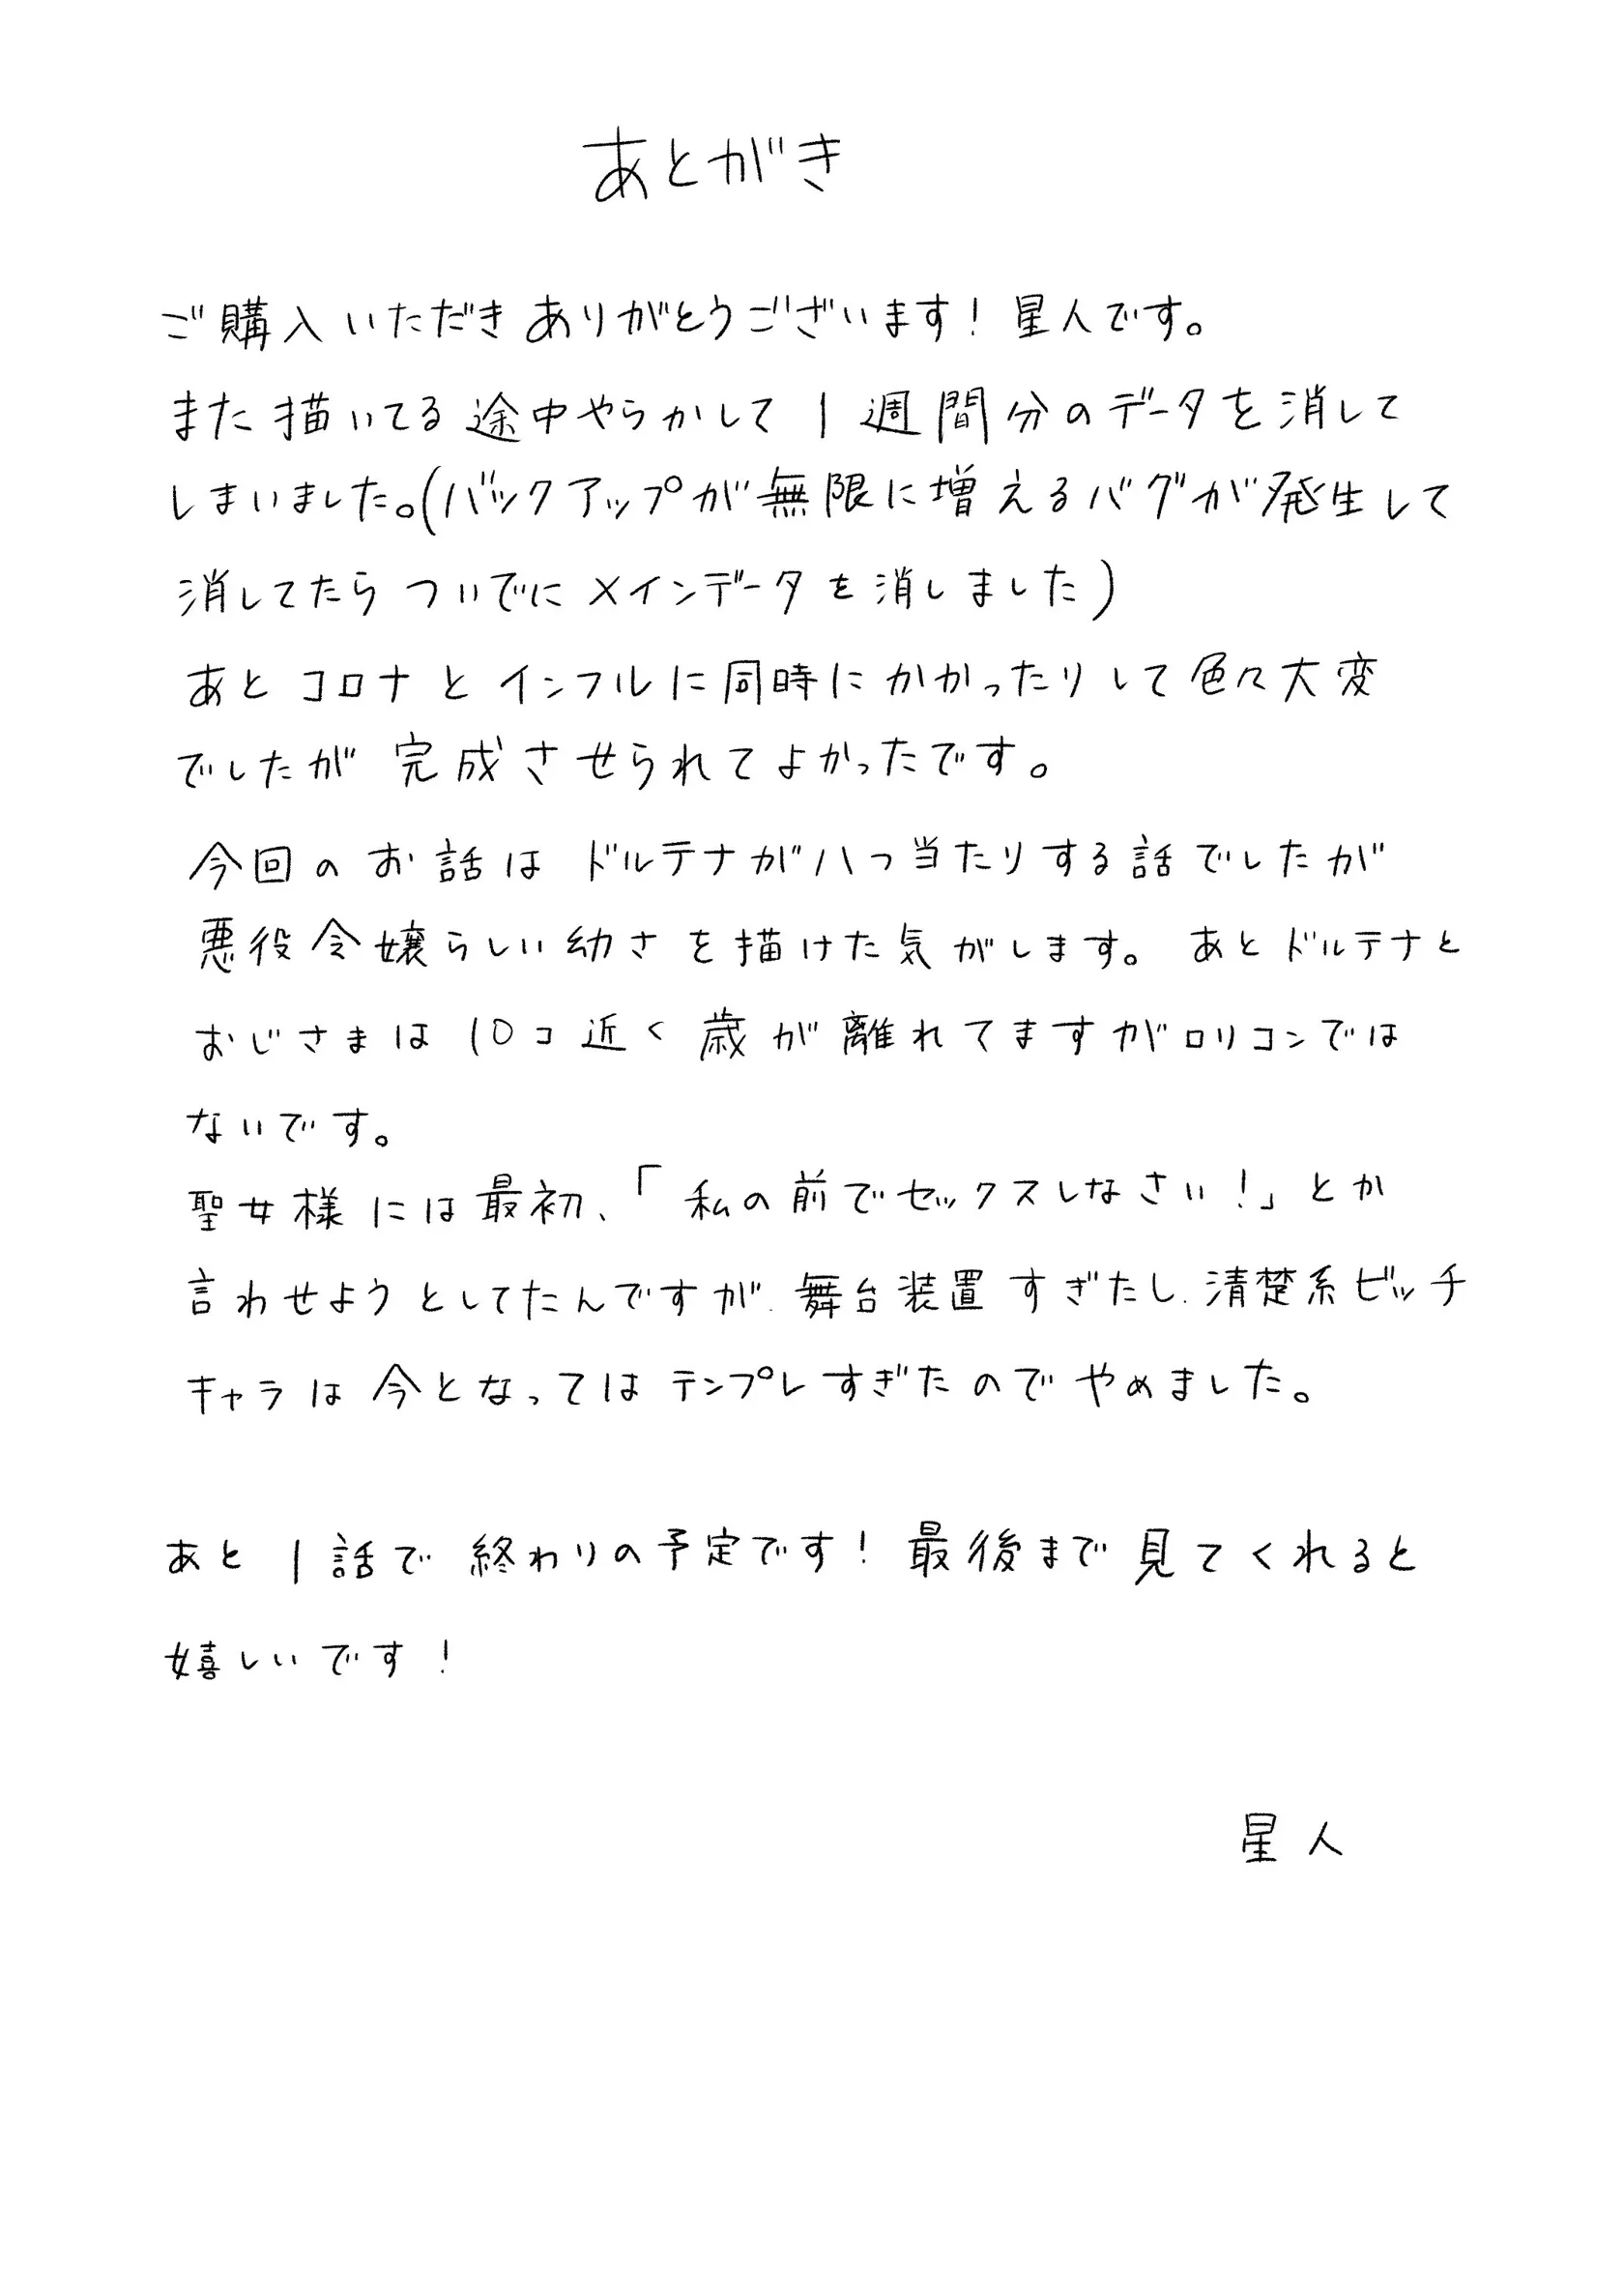 あとがき
ご購入いただきありがとうございます！星人です。
また描いてる途中やらかして1週間分のデータを消して
しまいました。(バックアップが無限に増えるバグが発生して
消してたらついでにメインデータを消しました)
あとコロナとインフルに同時にかかったりして色々大変
でしたが完成させられてよかったです。
今回のお話はドルテナが八つ当たりする話でしたが
悪役令嬢らしい幼さを描けた気がします。あとドルテナと
おじさまは10コ近く歳が離れてますがロリコンでは
ないです。
聖女様には最初、「私の前でセックスしなさい！」とか
言わせようとしてたんですが、舞台装置すぎたし、清楚系ビッチ
キャラは今となってはテンプレすぎたのでやめました。
あと1話で終わりの予定です！最後まで見てくれると
嬉しいです！
星人